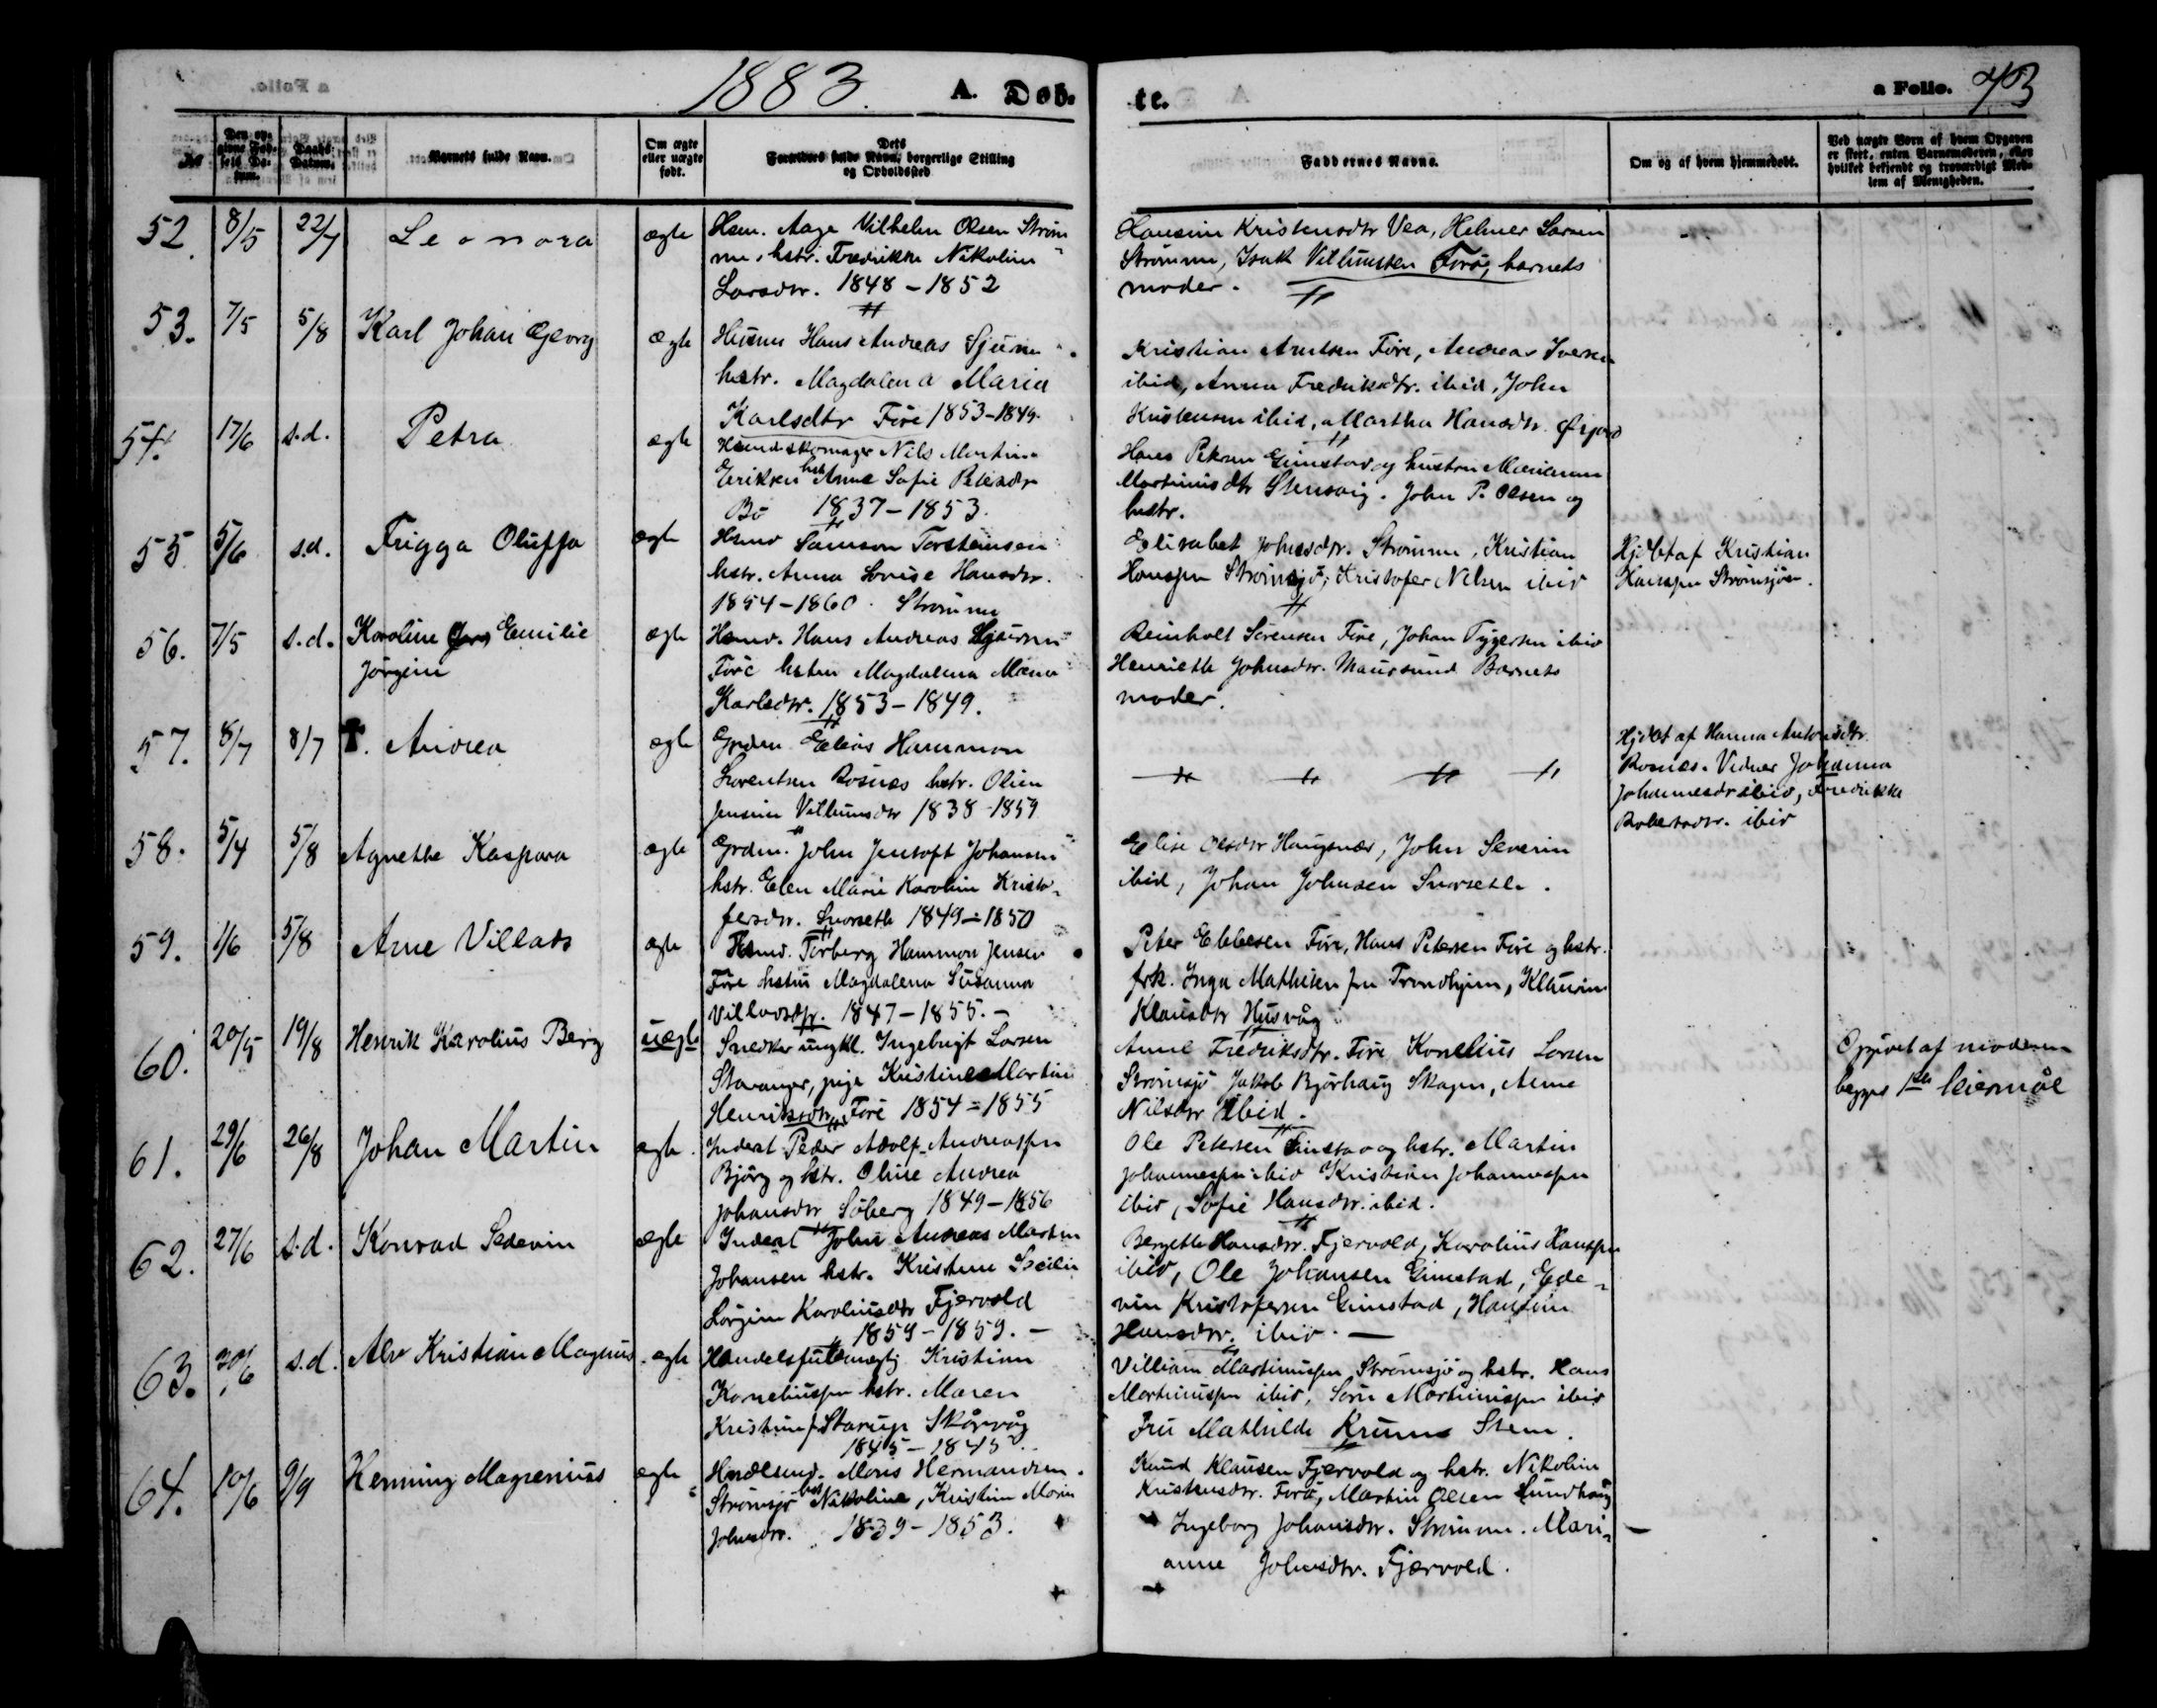 1883. A. Døb- te. a Folio. 43
No
Den opgivne Fødsels Datum.
Daabs Datum.
Barnets fulde Navn.
Om ægte eller uægte født.
Dets Forældres fulde Navn, borgerlige Stilling og Opholdssted
Faddernes Navne.
Om og af hvem hjemmedøbt.
Ved uægte Børn af hvem Opgaven er skeet, enten Barnemoderen, eller hvilket bekjendt og troværdigt Medlem af Menigheden.
52. 8/5 22/7 Leonora ægte
Hsm. Aage Vilhelm Olsen Strøm
me, hstr. Fredrikke Nikoline
Larsdtr. 1848 - 1852
Hansine Kristensdtr Vea, Helmer Larsen
Strømme, Isak Villumsen Forø, barnets
moder.
53. 7/5 5/8 Karl Johan Georg ægte
Husm Hans Andreas Sjursen
hstr. Magdalena Maria
Karlsdtr Føre 1853-1849.
Kristian Arntsen Føre, Andreas Iversen
ibid, Anna Fredriksdtr. ibid, John
Kristensen ibid, Martha Hansdtr.
54. 17/6 s.d. Petra ægte
Skomager Nils Martin
Eriksen hst Anne Sofie Petersdtr
Bø 1837-1853.
Hans Petersen Gunstad og hustru Marianne
Martinusdtr Stensvig. John P. Olsen og
hstr.
55. 5/6 s.d. Frigga Oluffa ægte
Hsmd Samson Torsteinsen
hstr. Anna Lovise Hansdtr.
1854-1860. Strømme
Elisabet Johnsdtr. Strømme, Kristian
Hanssen Strømsjø, Kristofer Nilsen ibid
Hjdbt af Kristian
Hanssen Strømsjøen.
56. 7/5 s.d. Karoline Emilie ægte
Jørgine
Hsmd. Hans Andreas Sjursen
Føre hstru Magdalena Maria
Karlsdtr. 1853-1849.
Reinholt Sørensen Føre, Johan Tygersen ibid
Henriette Johnsdtr. Maursund Barnets
moder.
57. 8/7 8/7 †. Andrea ægte
Grdm. Elias Hammon
Lorentsen Rosnæs hstr. Oline
Jensine Villumsdtr 1838-1859
Hjdbt af Hanna Antonsdtr.
Rosnæs. Vidner Johanna
Johannesdtr ibid, Fredrikke
Robertsdtr. ibid
58. 5/4 5/8 Agnethe Kaspara ægte
Grdm. John Jentoft Johansen
hstr. Elen Marie Karoline Kristo-
fersdtr. Snorsethe 1849-1850
Elise Olsdtr Haugsnes, John Severin
ibid, Johan Johnsen Snorsethe.
59. 1/6 5/8 Arne Villads ægte
Hsmd. Torberg Hammon Jensen
Føre hstru Magdalena Susanna
Villadsdtr. 1847-1855.-
Peter Ebbesen Føre, Hans Petersen Føre og hstr.
frk. Inga Mathisen fra Trondhjem, Klausine
Klausdtr Husvåg
60. 20/5 19/8 Henrik Karolius Berg uægte
Snedker ungkl. Ingebrigt Larsen
Stavanger, pige Kristine Martine
Henriksdtr Føre 1854=1855
Anne Fredriksdtr. Føre Kornelius Larsen
Strømsjø Jakob Bjørhaug Skagen, Anne
Nilsdtr ibid.
Opgivet af moderen
begges 1ste leiermål
61. 29/6 26/8 Johan Martin ægte.
Inderst Peder Adolf Andreassen
Bjørg og hstr. Oline Andrea
Johansdtr Søberg 1849-1856
Ole Petersen og hstr. Martin
Johannessen ibid Kristian Johannessen
ibid, Sofie Hansdtr. ibid.
62. 27/6 s.d. Konrad Sedevin ægte
Inderst John Andreas Martin
Johansen hstr. Kristine
Karoliusdtr Fjærvold
1859-1859.-
Bergette Hansdtr. Fjervold, Karolius Hanssen
ibid, Ole Johansen Gunstad, Ede-
vin Kristofersen Gunstad, Hansine
Hansdtr. ibid.-
63. 30/6 s.d. Alv Kristian Magnus ægte
Handelsfuldmægtig Kristian
Korneliussen hstr. Maren
Kristine f. Starup Skårvåg
1845-1845.
Villiam Martinussen Strømsjø og hstr. Hans
Martinussen ibid, Sørn Martinussen ibid
Fru Mathilde Steen.
64. 10/6 9/9 Henning Magrenius ægte
Hndlsmd. Mons Hermandsen
Strømsjø hst Nikoline, Kristine Marie
Johnsdtr. 1839-1853.
Knud Klausen Fjervold og hstr. Nikoline
Kristensdtr. Forø, Martin Olsen
Ingeborg Johansdtr. Strømme. Mari-
anne Johnsdtr. Fjærvold.